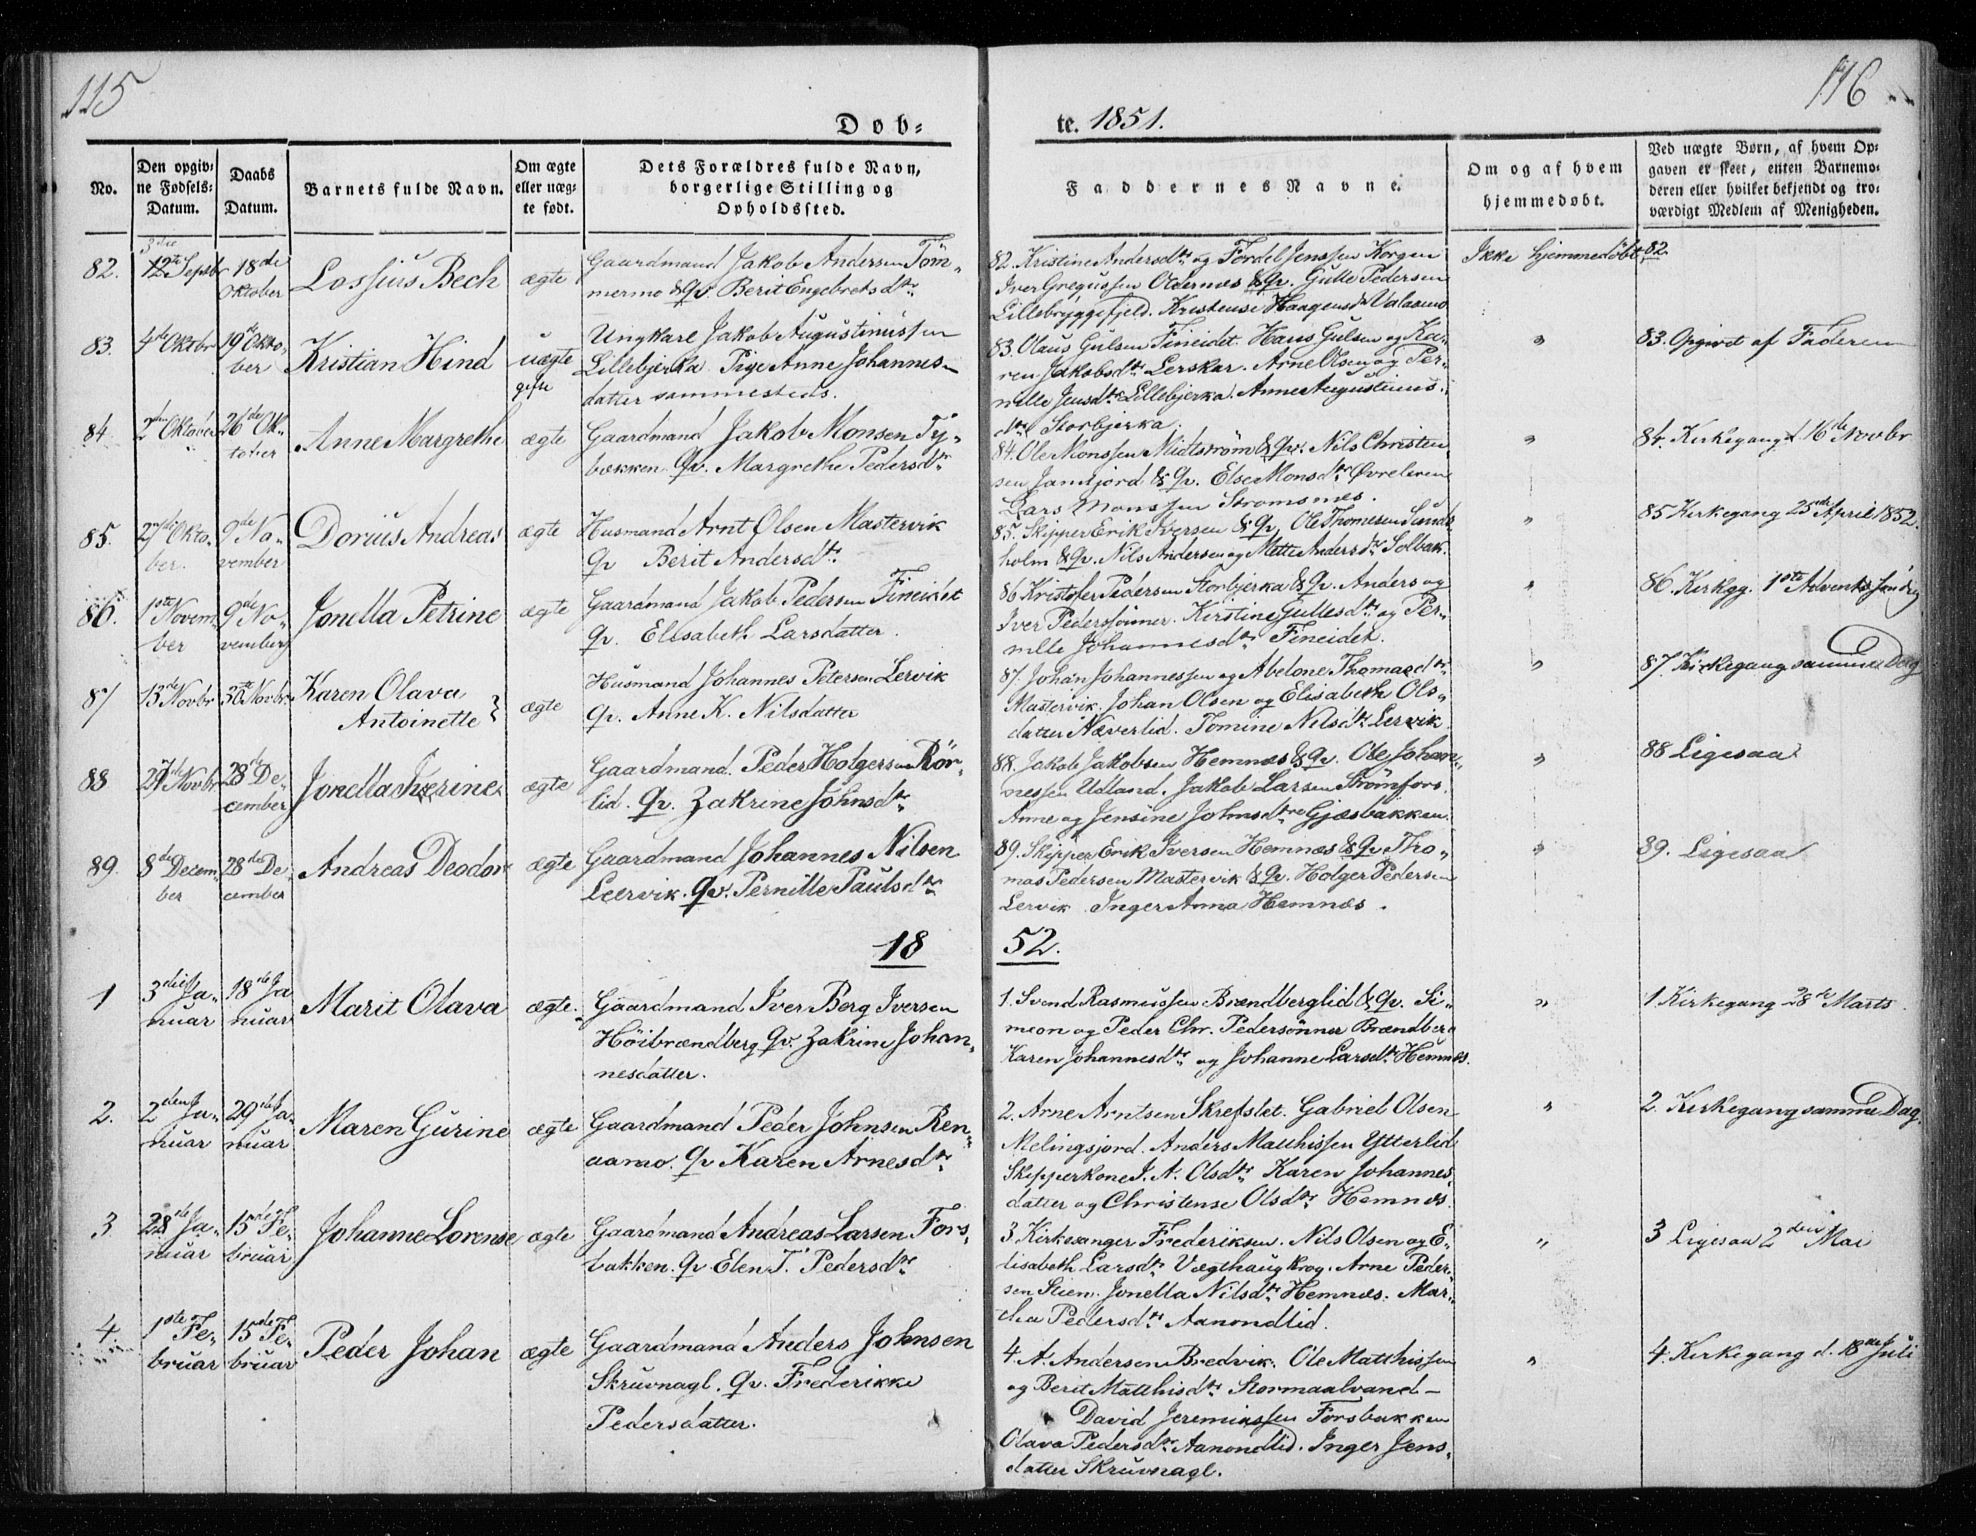 115
116
Døb-
te. 1851.
No.
Den opgiv-
ne Fødsels-
Datum.
Daabs
Datum.
Barnets fulde Navn.
Om ægte
eller uæg-
te født.
Dets Forældres fulde Navn,
borgerlige Stilling og
Opholdssted.
Faddernes Navne.
Om og af hvem
hjemmedøbt.
Ved uægte Børn, af hvem Op-
gaven er skeet, enten Barnemo-
deren eller hvilket bekjendt og tro-
værdigt Medlem af Menigheden.
82.
12te Septbr
18de
Oktober
Lossius Bech
ægte
Gaardmand Jakob Andersen Töm-
mermo & Qv. Berit Engebretsdtr
82. Kristine Andersdtr og Fordel Jenssen Korgen
Iver Gregussen Oldernæs & Qv. Gulle Pedersen
Lillebryggefjeld. Kristense Haagensdtr Valaamo
Ikke hjemmedöbt
82.
83.
4de Oktbr
19de Okto-
ber
Kristian Hind
uægte
Ungkarl Jakob Augustinussen
Lillebjerka Pige Anne Johannes-
datter sammesteds.
83. Olaus Gulsen Fineidet. Hans Gulsen og Ka-
ren Jakobsdtr Lerskar. Arne Olsen og Per-
nille Jensdtr Lillebjerka. Anne Augustinus-
dtr Storbjerka.
"
83. Opgivet af Faderen
84.
2den Oktober
26de Ok-
tober
Anne Margrethe
ægte
Gaardmand Jakob Monsen Ty-
bækken Qv. Margrethe Pedersdtr
84. Ole Monssen Midtström & Qv. Nils Christen
sen Jamtjord & Qv. Else Monsdtr Øvreleren
Lars Monssen Stromsnes.
"
84. Kirkegang d 16de Novbr
85.
27de Okto-
ber.
9de No-
vember
Dorius Andreas
ægte
Husmand Arnt Olsen Mastervik
Qv Berit Andersdtr
85. Skipper Erik Iversen & Qv. Ole Thomesen Sund-
holm & Qv. Nils Andersen og Mette Andersdtr Solbak.
"
85 Kirkegang 25de April 1852.
86.
1ste Novem-
ber
9de No-
vember
Jonella Petrine
ægte
Gaardmand Jakob Pedersen Fineidet
Qv. Elisabeth Larsdatter.
86 Kristofer Pedersen Storbjerka & Qv. Anders og
Iver Pederssönner. Kirstine Gullesdtr og Per-
nille Johannesdtr Fineidet.
"
86. Kirkgg. 1ste Advents söndag
87
13de Novbr
30te Novbr
Karen Olava
Antoinette
ægte
Husmand Johannes Petersen Lervik
Qv. Anne K. Nilsdatter
87. Johan Johannessen og Abelone Thomasdtr
Mastervik. Johan Olsen og Elisabeth Ols-
datter Næverlid. Tomine Nilsdtr Lervik
"
87. Kirkegang samme Dag
88
27de Novbr
28de De-
cember
Jonella Kærine
ægte
Gaardmand. Peder Holgersen Rör-
lid. Qv. Zakrine Johnsdtr
88. Jakob Jakobsen Hemnæs & Qv. Ole Johan-
nessen Udland. Jakob Larsen Strömfors.
Anne og Jensine Johnsdtre Gjæsbakken.
"
88 Ligesaa
89.
8de Decem-
ber
28de De-
cember
Andreas Deodor
ægte
Gaardmand Johannes Nilsen
Leervik. Qv. Pernille Paulsdtr
89. Skipper Erik Iversen Hemnæs & Qv Tho-
mas Pedersen Mastervik & Qv. Holger Pedersen
Lervik. Inger Anna Hemnæs.
"
89. Ligesaa
18 52.
1
3die Ja-
nuar
18de Ja
nuar
Marit Olava
ægte.
Gaardmand Iver Berg Iversen
Höibrændberg Qv. Zakrine Johan-
nesdatter.
1. Svend Rasmussen Brændberglid & Qv. Si-
meon og Peder Chr. Pedersönner Brændberg
Karen Johannesdtr og Johanne Larsdtr Hemnæs.
"
1 Kirkegang 28de Marts.
2.
2den Ja-
nuar
29de Ja-
nuar
Maren Gurine
ægte
Gaardmand Peder Johnsen Ren-
aamo. Qv Karen Arnesdtr
2. Arne Arntsen Skrefslet. Gabriel Olsen
Melingsjord. Anders Matthissen Ytterlid
Skipperkone J. A. Olsdtr Karen Johannes-
datter og Christense Olsdtr Hemnæs.
"
2. Kirkegang samme Dag.
3
28de Ja-
nuar
15de Fe-
bruar
Johanne Lorense
ægte
Gaardmand Andreas Larsen Fors-
bakken. Qv. Elen T. Pedersdtr
3. Kirkesanger Frederiksen. Nils Olsen og E-
lisabeth Larsdtr Vægthaugkrog. Arne Peder-
sen Stien. Jonella Nilsdtr Hemnæs. Mar-
tha Pedersdtr Aanondlid.
"
3 Ligesaa 2den Mai
4.
1ste Fe-
bruar
15de Fe-
bruar
Peder Johan
ægte
Gaardmand Anders Johnsen
Skruvnagl. Qv. Frederikke
Pedersdatter.
4. A. Andersen Bredvik. Ole Matthissen
og Berit Matthisdtr Stormaalvand-
David Jeremiassen Forsbakken
Olava Pedersdtr Aanondlid. Inger Jens-
datter Skruvnagl.
"
4. Kirkegang d. 18de Juli